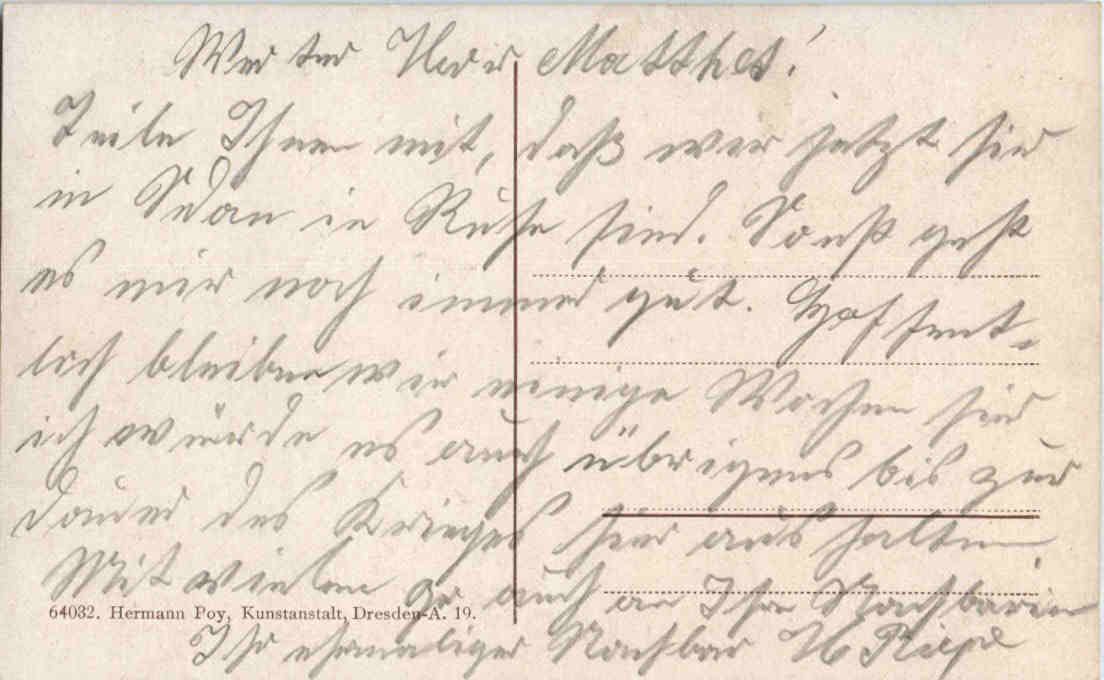 Werter Herr Matthes!
Teile Ihnen mit, daß wir jetzt hier
in Sedan in Ruhe sind. Sonst geht
es mir noch immer gut. Hoffent-
lich bleiben wir einige Wochen hier
ich würde es auch übrigens bis zur
Dauer des Krieges hier aushalten.
Mit vielen Gr auch an Ihre Nachbarin
64032. Hermann Poy, Kunstanstalt, Dresden-A. 19.
Ihr ehemaliger Nachbar H Riepe